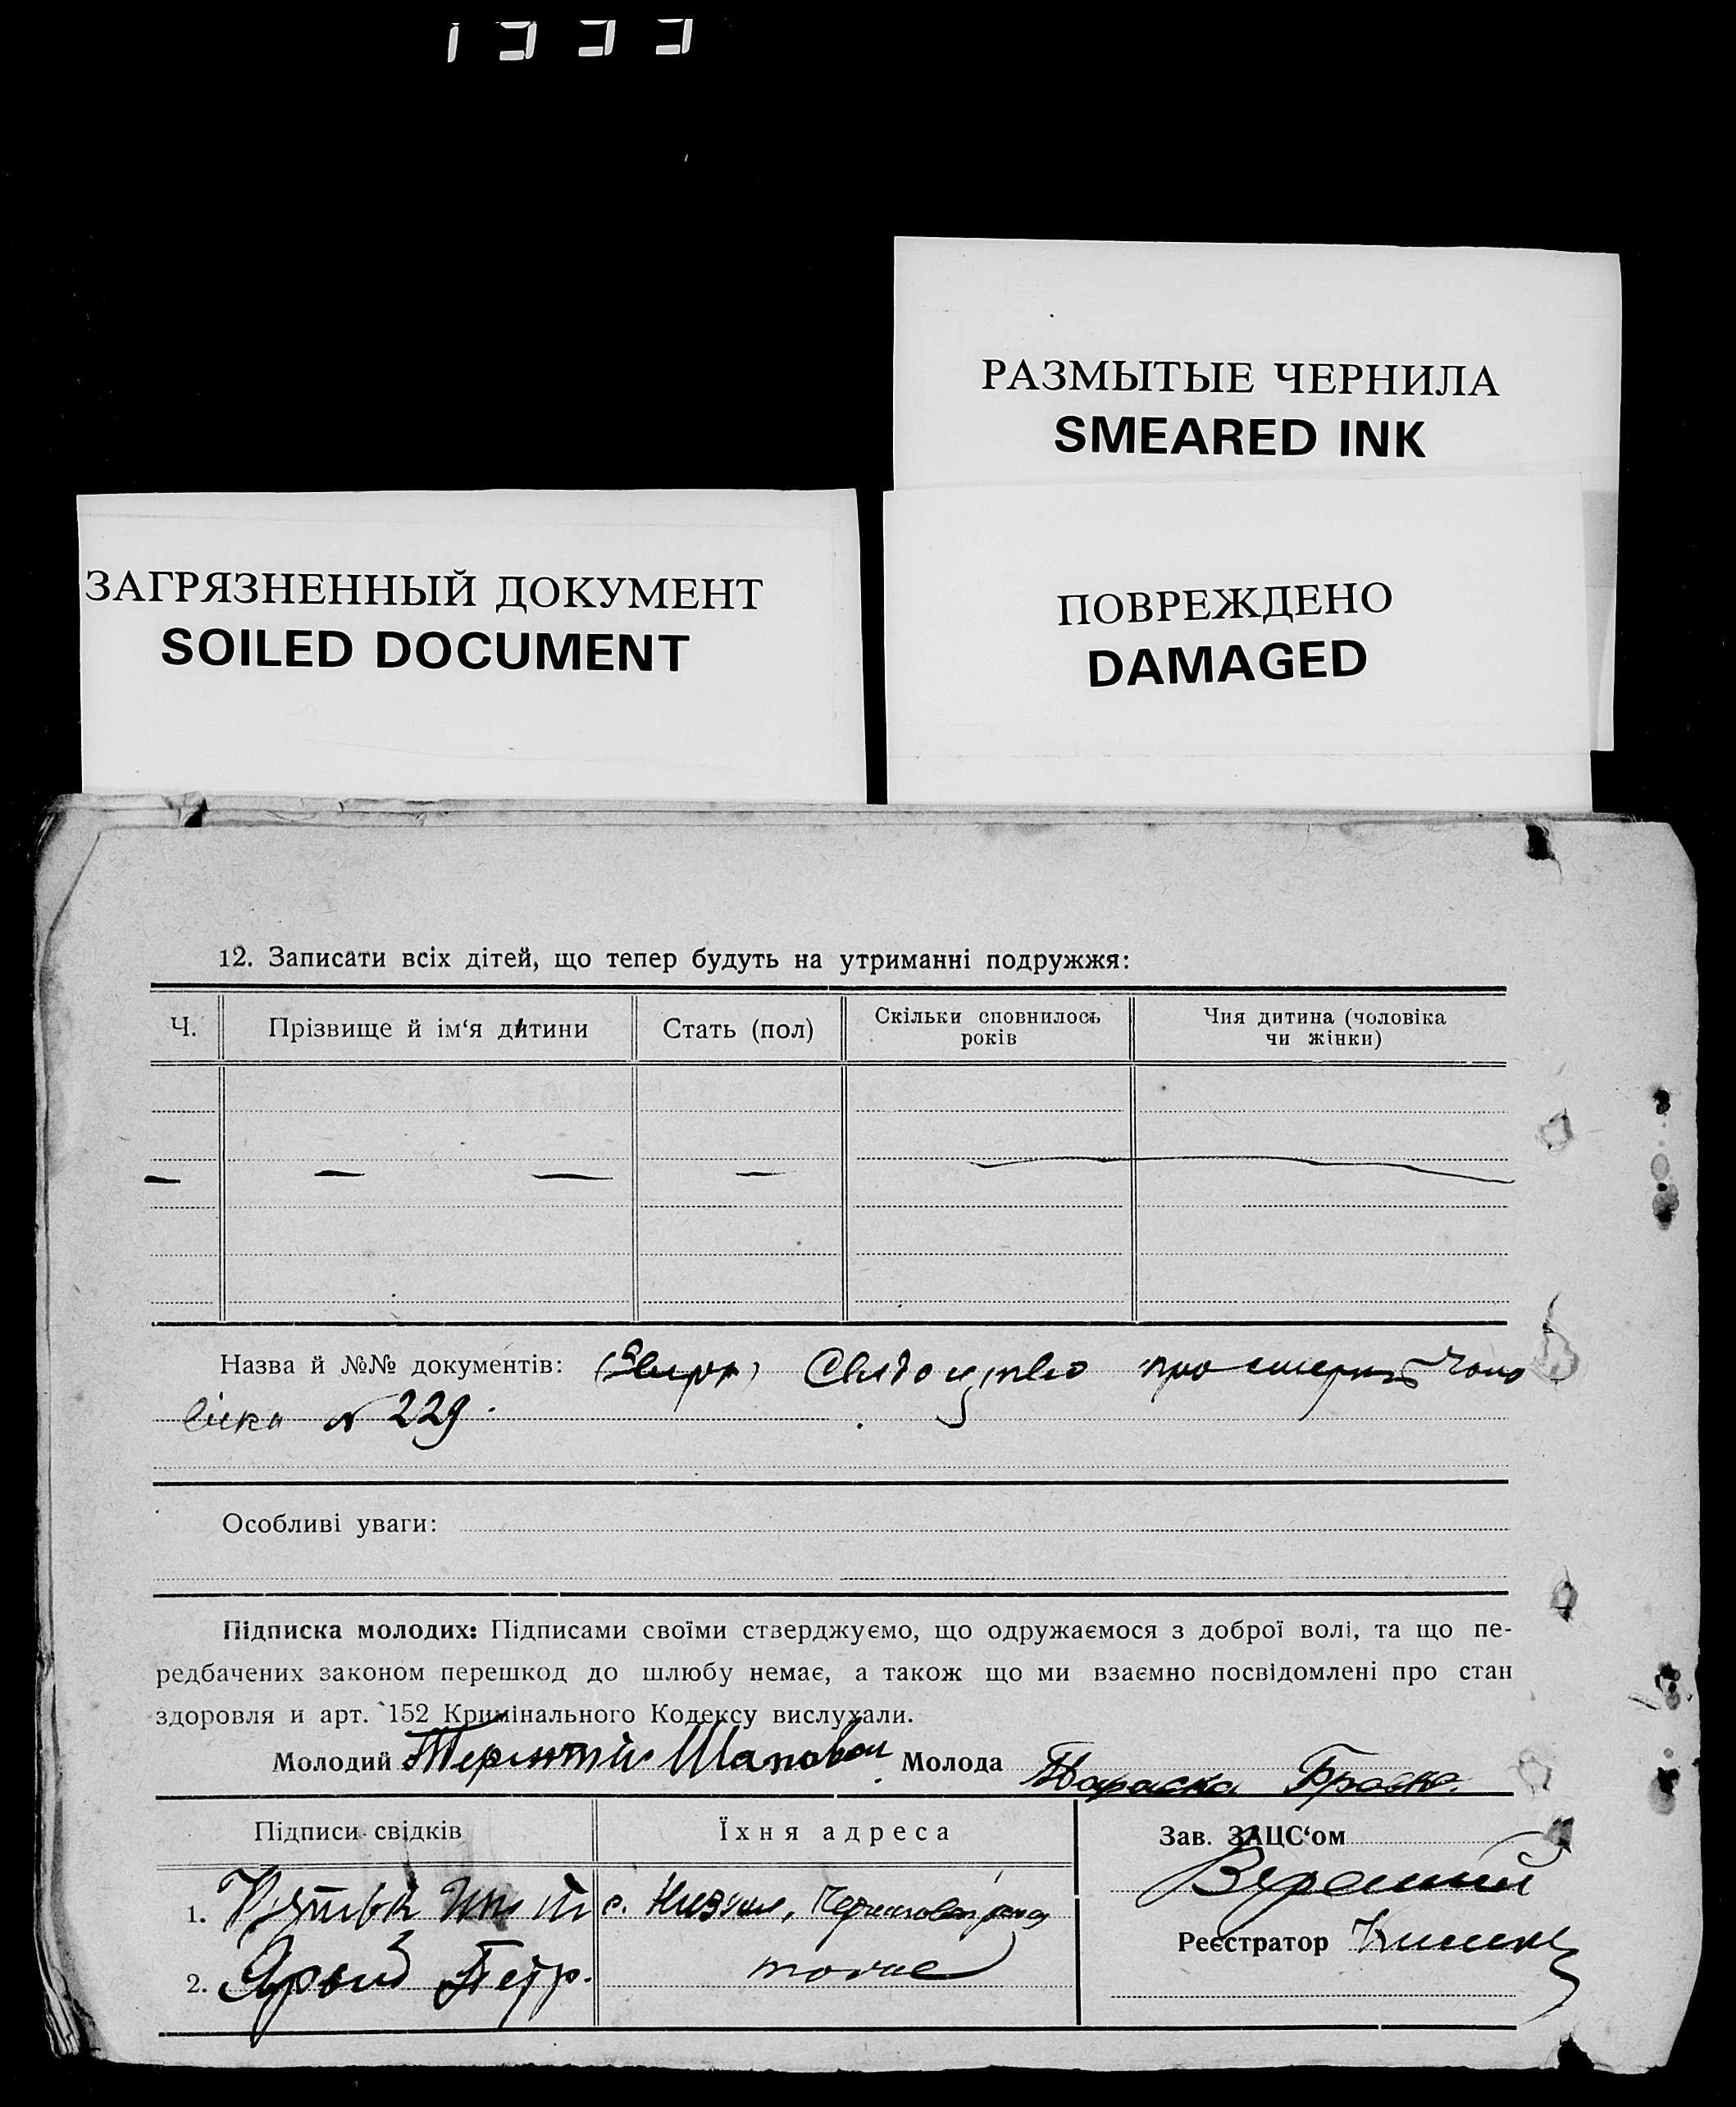 РАЗМЫТЫЕ ЧЕРНИЛА
SMEARED INK
ЗАГРЯЗНЕННЫЙ ДОКУМЕНТ
SOILED DOCUMENT
ПОВРЕЖДЕНО
DAMAGED
12. Записати всіх дітей, що тепер будуть на утриманні подружжя:
Ч. Прізвище й ім‘я дитини Стать (пол) Скільки сповнилось років Чия дитина (чоловіка чи жінки)
— — — —
Назва й №№ документів: Свидоцтво про смерть чоло
віка № 229.
Особливі уваги:
Підписка молодих: Підписами своїми стверджуємо, що одружаємося з доброї волі, та що пе-
редбачених законом перешкод до шлюбу немає, а також що ми взаємно посвідомлені про стан
здоровля и арт. 152 Кримінального Кодексу вислухали.
Молодий Терентій Шаповал Молода Параска
Підписи свідків Їхня адреса Зав. ЗАЦС‘ом
1. с.
Реєстратор
2. Ярый Петр. тоже